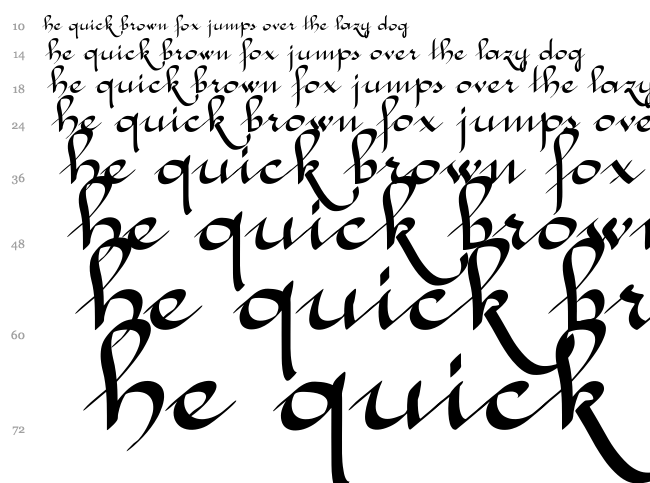 10 he quick brown fox jumps over the lazy dog
14 he quick brown fox jumps over the lazy dog
18 he quick brown fox jumps over the lazy
24 he quick brown fox jumps ove
36 he quick brown fox
48 he quick brown
60 he quick br
72 he quick